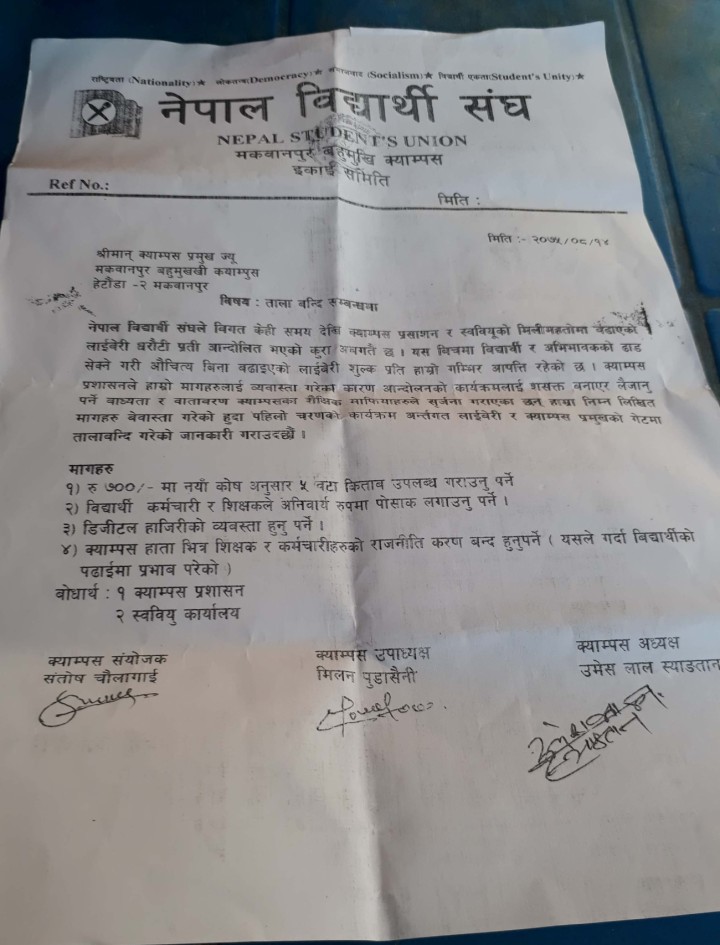 राष्ट्रियता (Nationality)★ लोकतन्त्र(Democracy)★ समाजवाद (Socialism)★ विद्यार्थी एकता(Student's Unity)★
नेपाल विद्यार्थी संघ
NEPAL STUDENT'S UNION
मकवानपुर बहुमुखि क्याम्पस
इकाई समिति
Ref No.:
मिति :
मिति :- २०७५/०८/१४
श्रीमान् क्याम्पस प्रमुख ज्यू
मकवानपुर बहुमुखखी कयाम्पुस
हेटौंडा -२ मकवानपुर
विषय : ताला बन्दि सम्बन्धमा
नेपाल विद्यार्थी संघले विगत केही समय देखि क्याम्पस प्रसाशन र स्ववियूको मिलीमहतोमा बढाएको
लाईबेरी धरौटी प्रती आन्दोलित भएको कुरा अवगतै छ । यस विचमा विद्यार्थी र अभिभावकको ढाड
सेक्ने गरी औचित्य बिना बढाइएको लाईबेरी शुल्क प्रति हाम्रो गम्भिर आपत्ति रहेको छ । क्याम्पस
प्रशासनले हाम्रो मागहरुलाई व्यवास्ता गरेको कारण आन्दोलनको कार्यक्रमलाई शसक्त बनाएर लैजानु
पर्ने वाध्यता र वातावरण क्याम्पसका शैक्षिक माफियाहरुले सृर्जना गराएका छन् हाम्रा निम्न लिखित
मागहरु बेवास्ता गरेको हुदा पहिलो चरणको कार्यक्रम अर्न्तगत लाईबेरी र क्याम्पस प्रमुखको गेटमा
तालाबन्दि गरेको जानकारी गराउदछौं ।
मागहरु
१) रु ७००/- मा नयाँ कोष अनुसार ५ वटा किताब उपलब्ध गराउनु पर्ने
२) विद्यार्थी कर्मचारी र शिक्षकले अनिवार्य रुपमा पोसाक लगाउनु पर्ने ।
३) डिजीटल हाजिरीको व्यवस्ता हुनु पर्ने ।
४) क्याम्पस हाता भित्र शिक्षक र कर्मचारीहरुको राजनीति करण बन्द हुनुपर्ने ( यसले गर्दा बिद्यार्थीको
पढाईमा प्रभाव परेको )
बोधार्थ : १ क्याम्पस प्रशासन
२ स्ववियु कार्यालय
क्याम्पस संयोजक
क्याम्पस उपाध्यक्ष
क्याम्पस अध्यक्ष
संतोष चौलागाई
मिलन पुडासैनी
उमेस लाल स्याङतान